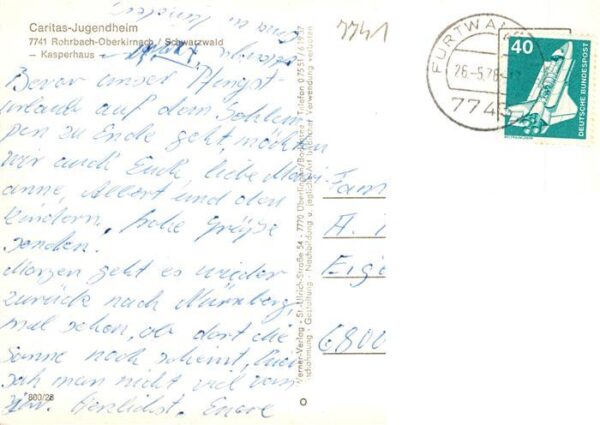 Caritas-Jugendheim
7741 Rohrbach-Oberkirnach / Schwarzwald
— Kasperhaus —
Bevor unser Pfingst-
urlaub auf dem
zu Ende geht, möchten
wir auch Euch, liebe
anne, Albert und den
Kindern, frohe Grüße
senden.
Morgen geht es wieder
zurück nach Nürnberg,
mal sehen, ob dort die
Sonne noch scheint, hier
sah man nicht viel von
ihr. Herzlichst, Euere
800/28
7741
FURTWA
26.-5.78
774
40
DEUTSCHE BUNDESPOST
Werner-Verlag - St.-Ulrich-Straße 54 - 7770 Überlingen/Bodensee - Telefon 07551/
Gestaltung - Nachbildung u. jegliche Art Verwendung verboten
Fam
H.
6800